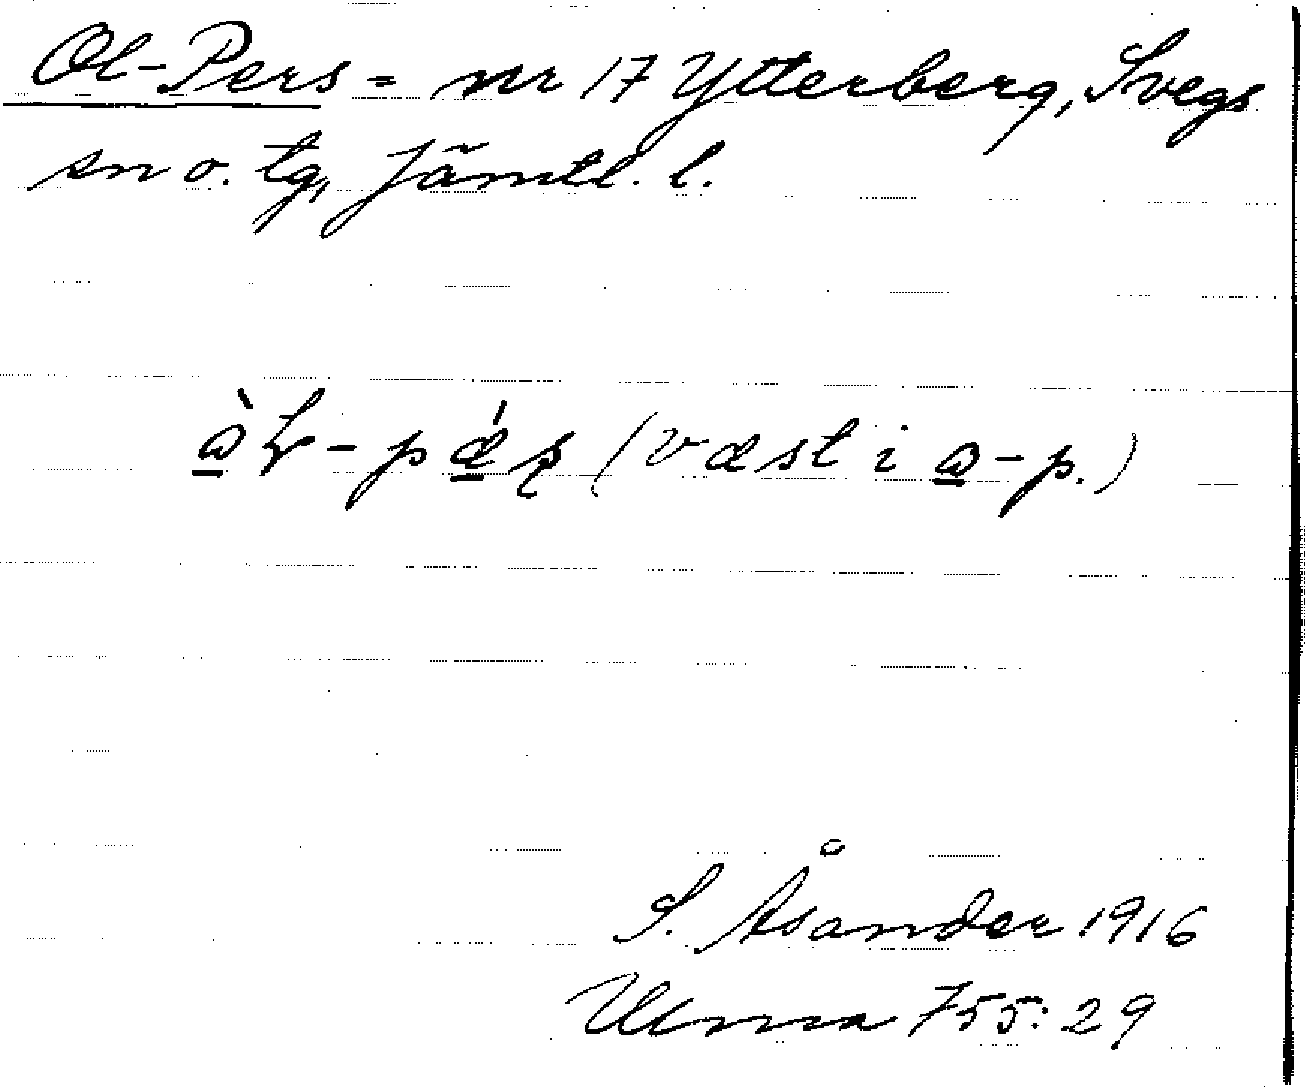 Ol-Pers = nr 17 Ytterberg, Svegs
sn o. tg, Jämtl. l.
(væst i
S. Åsander 1916
Ulma 755:29